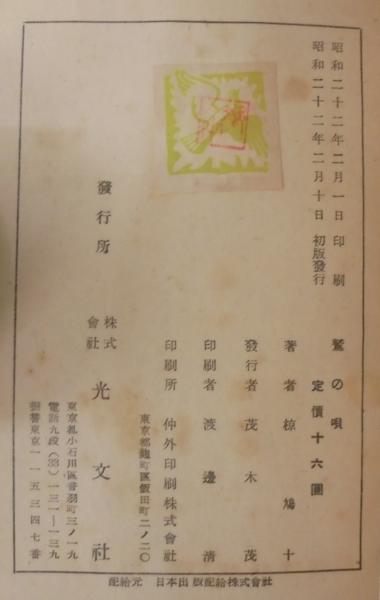 昭和二十二年二月一日 印刷
昭和二十二年二月十日 初版發行
鷲の唄
定價十六圓
著者 椋鳩十
發行者 茂木茂
印刷者 渡邊清
東京都麹町區飯田町二ノ二〇
印刷所 仲外印刷株式會社
發行所 株式會社 光文社
東京都小石川區音羽町三ノ一九
電話九段(33)一三一―一三九
振替東京一一五三四七番
配給元 日本出版配給株式會社